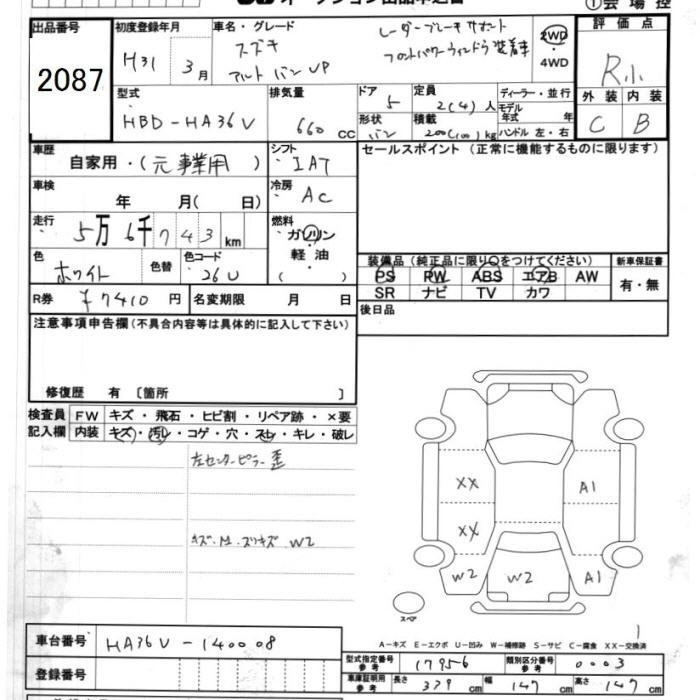 ①会場控
出品番号
2087
初度登録年月
H31 3月
車名・グレード
スズキ
アルト バン VP
レーダーブレーキサポート
フロントパワーウィンドウ装着車
2WD
・
4WD
評価点
R小
外装 内装
C B
型式
HBD-HA36V
排気量
660 cc
ドア
5
形状
バン
定員
2(4)人
積載
200(100)kg
ディーラー・並行
モデル
年式 年
ハンドル 左・右
車歴
自家用・(元事業用)
シフト
IAT
セールスポイント(正常に機能するものに限ります)
車検
年 月( 日)
冷房
AC
走行
5万6千743km
燃料
ガソリン
・
軽油
・
( )
色
ホワイト
色替
色コード
26U
装備品(純正品に限り○をつけてください)
PS PW ABS エアB AW
SR ナビ TV カワ
新車保証書
有・無
R券 ¥7410円
名変期限 月 日
後日品
注意事項申告欄(不具合内容等は具体的に記入して下さい)
修復歴 有 〔箇所 〕
検査員
記入欄
FW キズ・飛石・ヒビ割・リペア跡・×要
内装 キズ・汚レ・コゲ・穴・スレ・キレ・破レ
左センターピラー歪
キズ・M・スリキズ W2
XX
A1
XX
W2
W2
A1
スペア
1
A-キズ E-エクボ U-凹み W-補修跡 S-サビ C-腐食 XX-交換済
車台番号 HA36V-140008
登録番号
型式指定番号
参考
17956
類別区分番号
参考
0003
車庫証明用
参考
長さ 339cm 幅 147cm 高さ 147cm